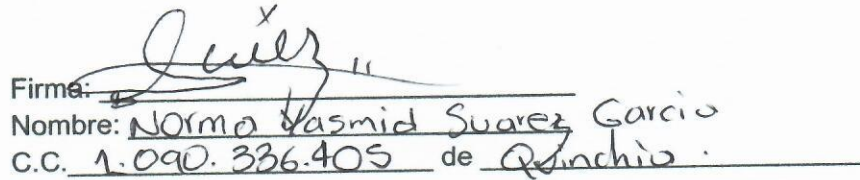 Firma:
Nombre: Norma Yasmid Suarez Garcia
C.C. 1.090.336.405 de Quinchia.